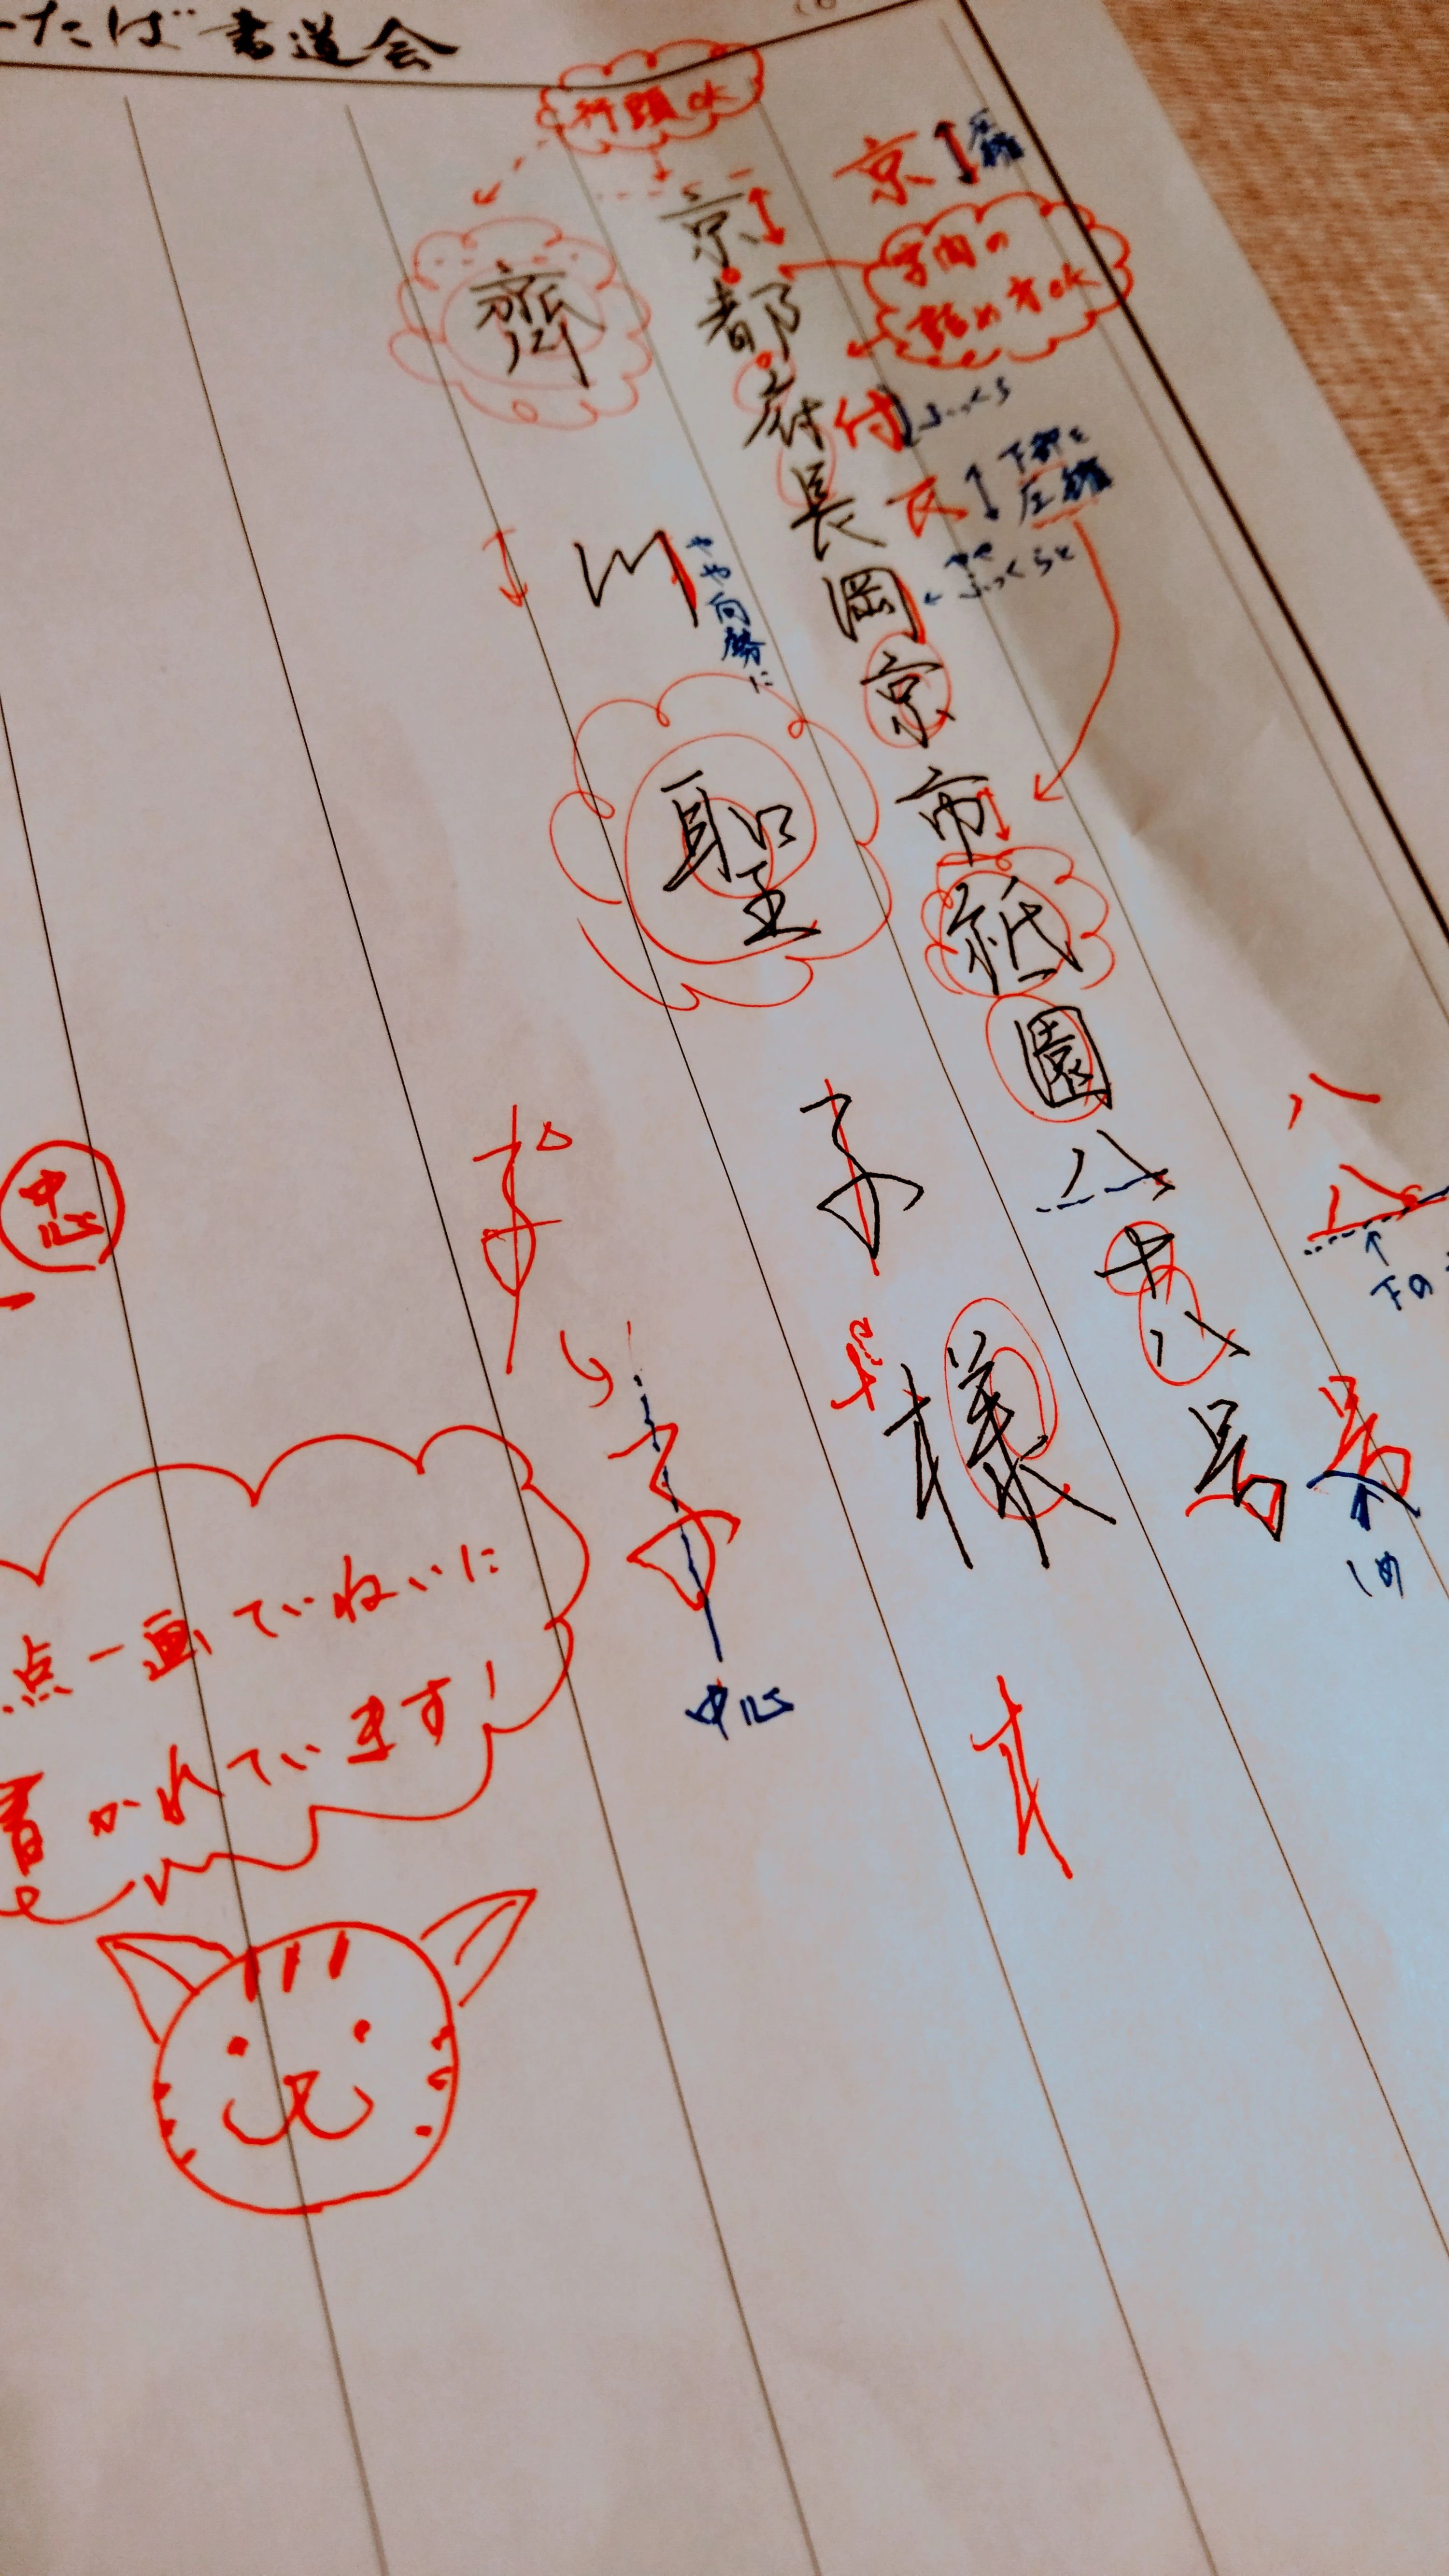 たば書道会
行頭OK
京
圧縮
京都府長岡京市祇園八十八号
字間の
詰め方OK
付
ふっくら
下部を
圧縮
やや
ふっくらと
八
八
下の
号
しめ
齊川聖子様
やや向勢に
子
中心
中心
点一画ていねいに
書かれています!